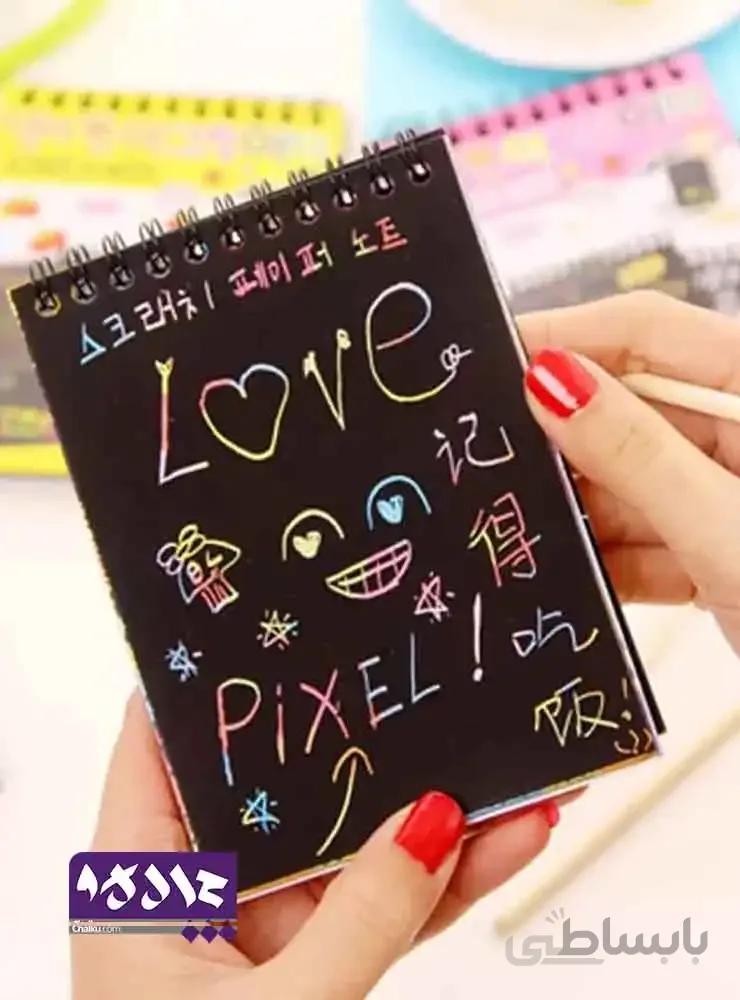 스크래치 페이퍼 노트
Love
记
得
吃
饭!
PiXEL!
چالاکو
Chalku.com
بابساطی